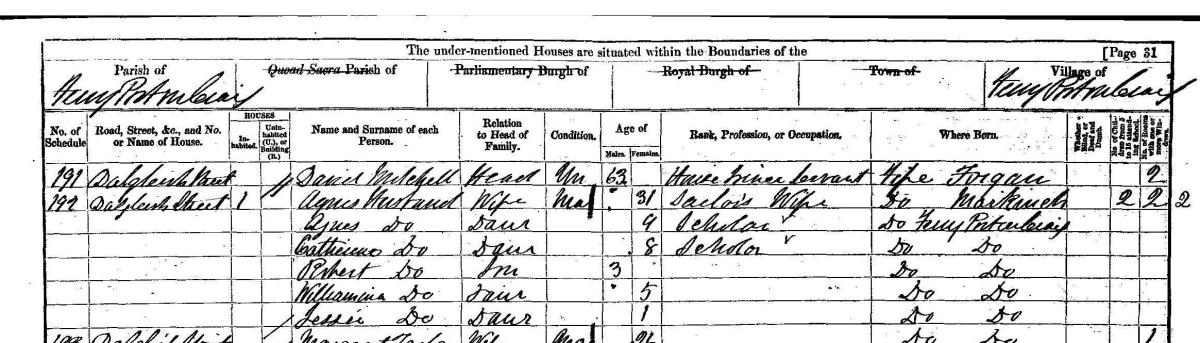 The under-mentioned Houses are situated within the Boundaries of the [Page 31
Parish of Quoad Sacra Parish of Parliamentary Burgh of Royal Burgh of Town of Village of
Ferry Port on Craig Ferry Port on Craig
No. of Schedule Road, Street, &c., and No. or Name of House. HOUSES Inhabited. Uninhabited (U.), or Building (B.) Name and Surname of each Person. Relation to Head of Family. Condition. Age of Males. Females. Rank, Profession, or Occupation. Where Born. Whether Blind, or Deaf and Dumb. No. of Children from 5 to 15 attending School. No. of Rooms with one or more Windows.
191 Dalgleish Street David Mitchell Head Un 63 Servant Fife Forgan 2
192 Dalgleish Street 1 Agnes Wife Mar 31 Sailor's Wife Do Markinch 2 2 2
Agnes Do Daur 9 Scholar Do Ferry Port on Craig
Catherine Do Daur 8 Scholar Do Do
Robert Do Son 3 Do Do
Williamina Do Daur 5 Do Do
Jessie Do Daur 1 Do Do
193 Margaret Do Do 1